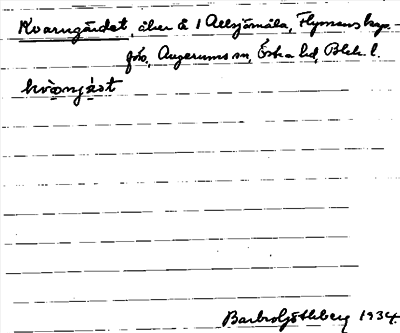 Kvarngärdet, åker å 1 Aelsjömåla, Flymens kap-
förs, Augerums sn, Östra hd, Blek. l.
kvòŋjást
Barbro Göthberg 1934.